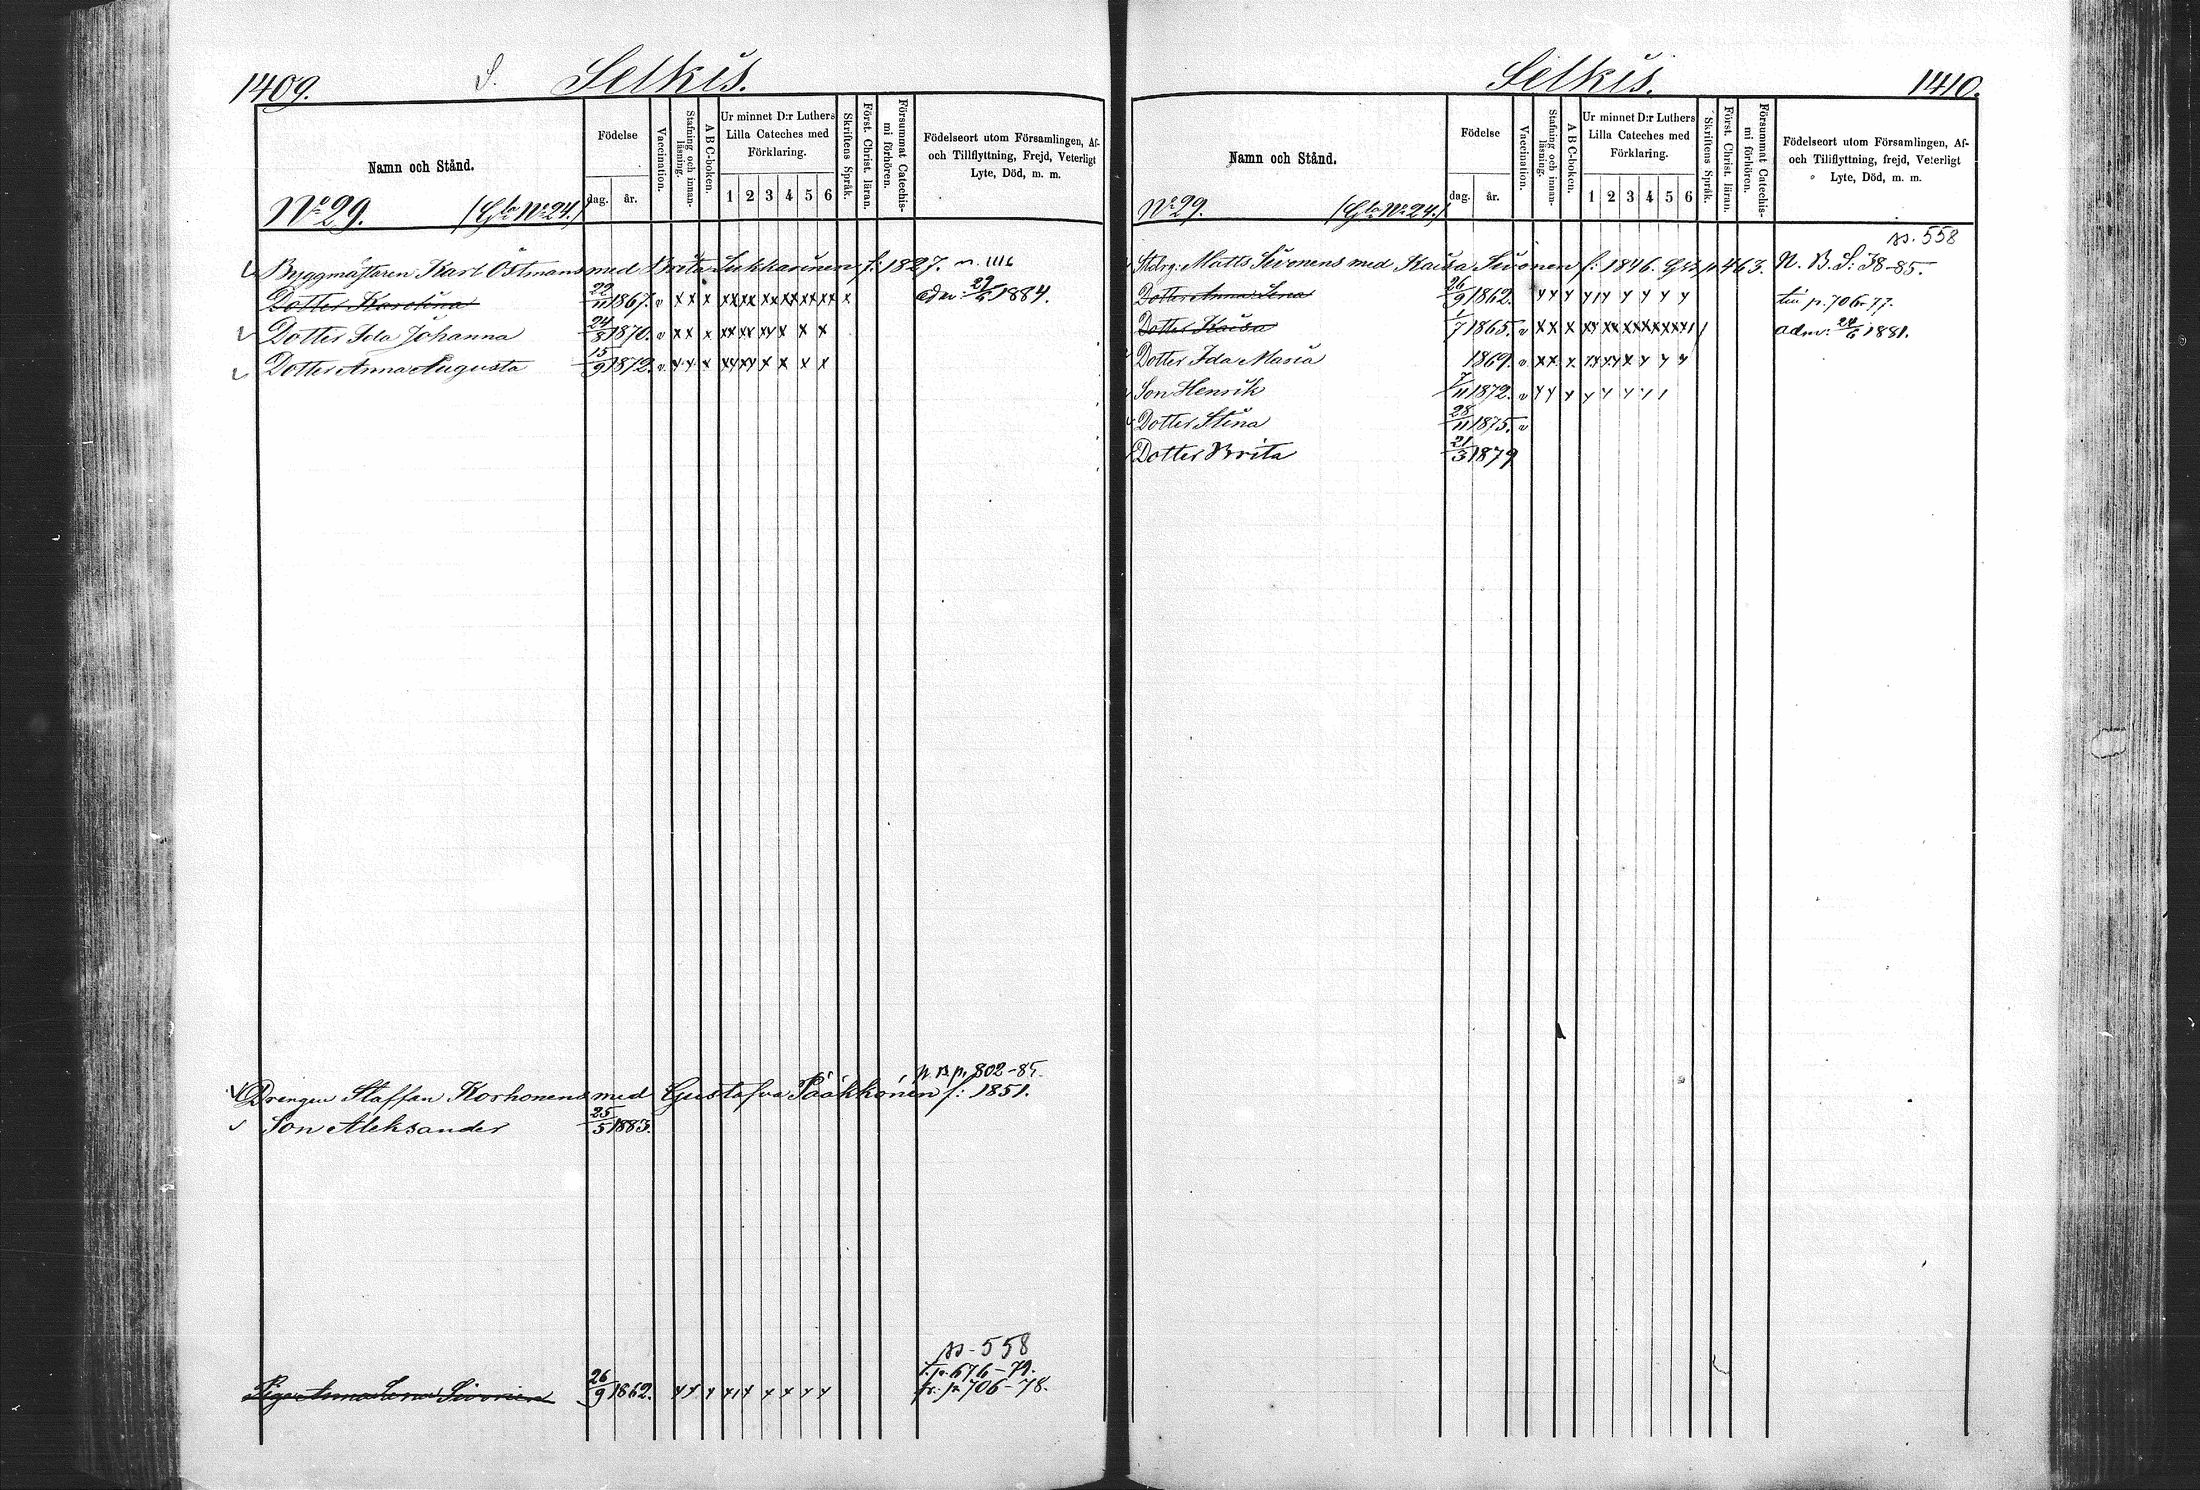 1409. S. Selkis.
Namn och Stånd.
Födelse
dag. år.
Vaccination.
Stafning och innanläsning.
A B C-boken.
Ur minnet D:r Luthers Lilla Cateches med Förklaring.
1 2 3 4 5 6
Skriftens Språk.
Först. Christ. läran.
Försummat Catechismi förhören.
Födelseort utom Församlingen, Af- och Tillflyttning, Frejd, Veterligt Lyte, Död, m. m.
No 29. (Gla No 24.)
Byggmästaren Karl Östmans med Brita Sukkarinen f: 1827.
Dotter Karolina 22/11 1867. v x x x xx xx xx xx xx x adm: 29/6 1884.
Dotter Ida Johanna 24/8 1870. v x x x xx xx xx x x x
Dotter Anna Augusta 15/9 1872. v x x x xx xx x x x x
N. B. p. 802-85.
Drengen Staffan Korhonens med Gustafva Pääkkönen f: 1851.
Son Aleksander 25/5 1883.
ss. 558
t. p. 676-79.
Piga Anna Lena Sivonen 26/9 1862. x x x x x x x x x fr. p. 706-78.
Selkis. 1410.
Namn och Stånd.
Födelse
dag. år.
Vaccination.
Stafning och innanläsning.
A B C-boken.
Ur minnet D:r Luthers Lilla Cateches med Förklaring.
1 2 3 4 5 6
Skriftens Språk.
Först. Christ. läran.
Försummat Catechismi förhören.
Födelseort utom Församlingen, Af- och Tillflyttning, frejd, Veterligt Lyte, Död, m. m.
No 29. (Gla No 24.)
ss. 558
Matts Sivonens med Kaisa Sivonen f: 1846. Gla p 463. N. B. S: 38-85.
Dotter Anna Lena 26/9 1862. x x x x x x x x x till p. 706-77.
Dotter Kaisa 1/7 1865. v x x x xx xx xx xx xx x adm: 24/6 1881.
Dotter Ida Maria 1869. v x x x xx xx x x x x
Son Henrik 7/11 1872. v x x x x x x
Dotter Stina 28/11 1875. v
Dotter Brita 21/3 1879